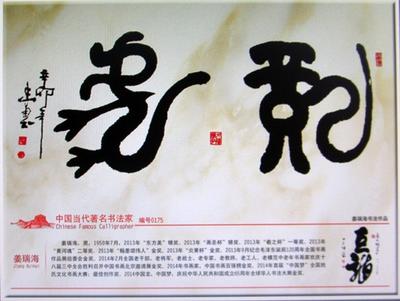 辛卯年
中国当代著名书法家 编号0175
Chinese Famous Calligrapher
姜瑞海书法作品
姜瑞海
Jiang Ruihai
姜瑞海,男,1950年7月,2013年“东方美”银奖,2013年“商圣杯”银奖,2013年“春之杯”一等奖,2013年
“黄河魂”二等奖,2013年“翰墨颂伟人”金奖,2013年“炎黄杯”金奖,2013年9月纪念毛泽东诞辰120周年全国书画
作品展组委会金奖,2014年2月全国老干部、老将军、老战士、老专家、老教师、老工人、老模范中老年书画家欢庆十
八届三中全会胜利召开中国书画北京邀请展金奖,2014年书画家,中国书画百强榜金奖,2014年首届“中国梦”全国
文化书画大赛,最佳创作奖,2014中国龙、中国梦,庆祝中华人民共和国成立65周年全球华人书法大展金奖。